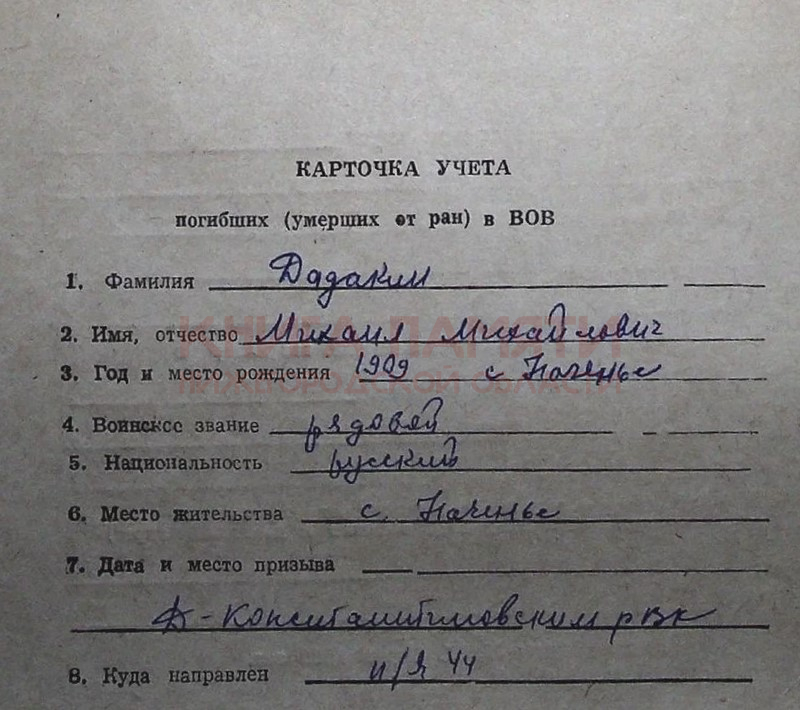 КАРТОЧКА УЧЕТА
погибших (умерших от ран) в ВОВ
1. Фамилия Дадакин
2. Имя, отчество Михаил Михайлович
КНИГА ПАМЯТИ
3. Год и место рождения 1909 с Паченье
НИЖЕГОРОДСКОЙ ОБЛАСТИ
4. Воинское звание рядовой
5. Национальность русский
6. Место жительства с. Паченье
7. Дата и место призыва
Д-Константиновским рвк
8. Куда направлен п/я 44